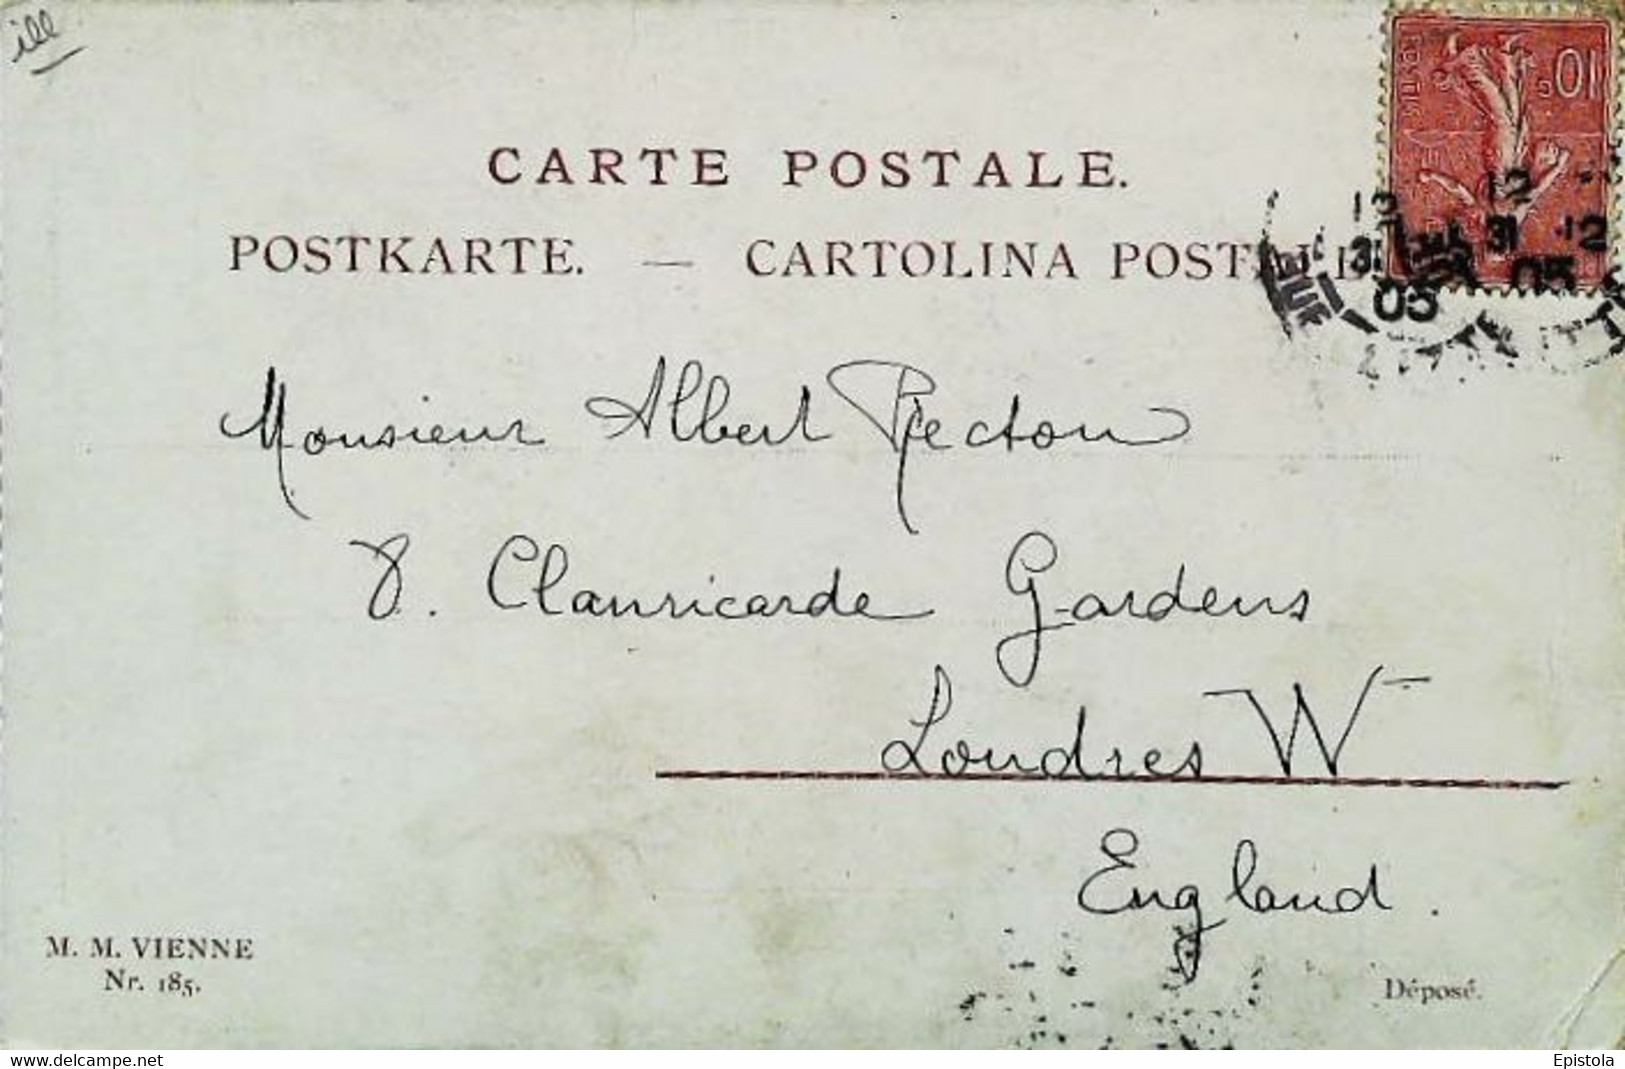 ill
10
CARTE POSTALE.
POSTKARTE. — CARTOLINA POSTALE
12 12
31 31 12
05 05
Monsieur Albert Recton
8. Clanricarde Gardens
Londres W
England.
M. M. VIENNE
Nr. 185.
Déposé.
www.delcampe.net
Epistola